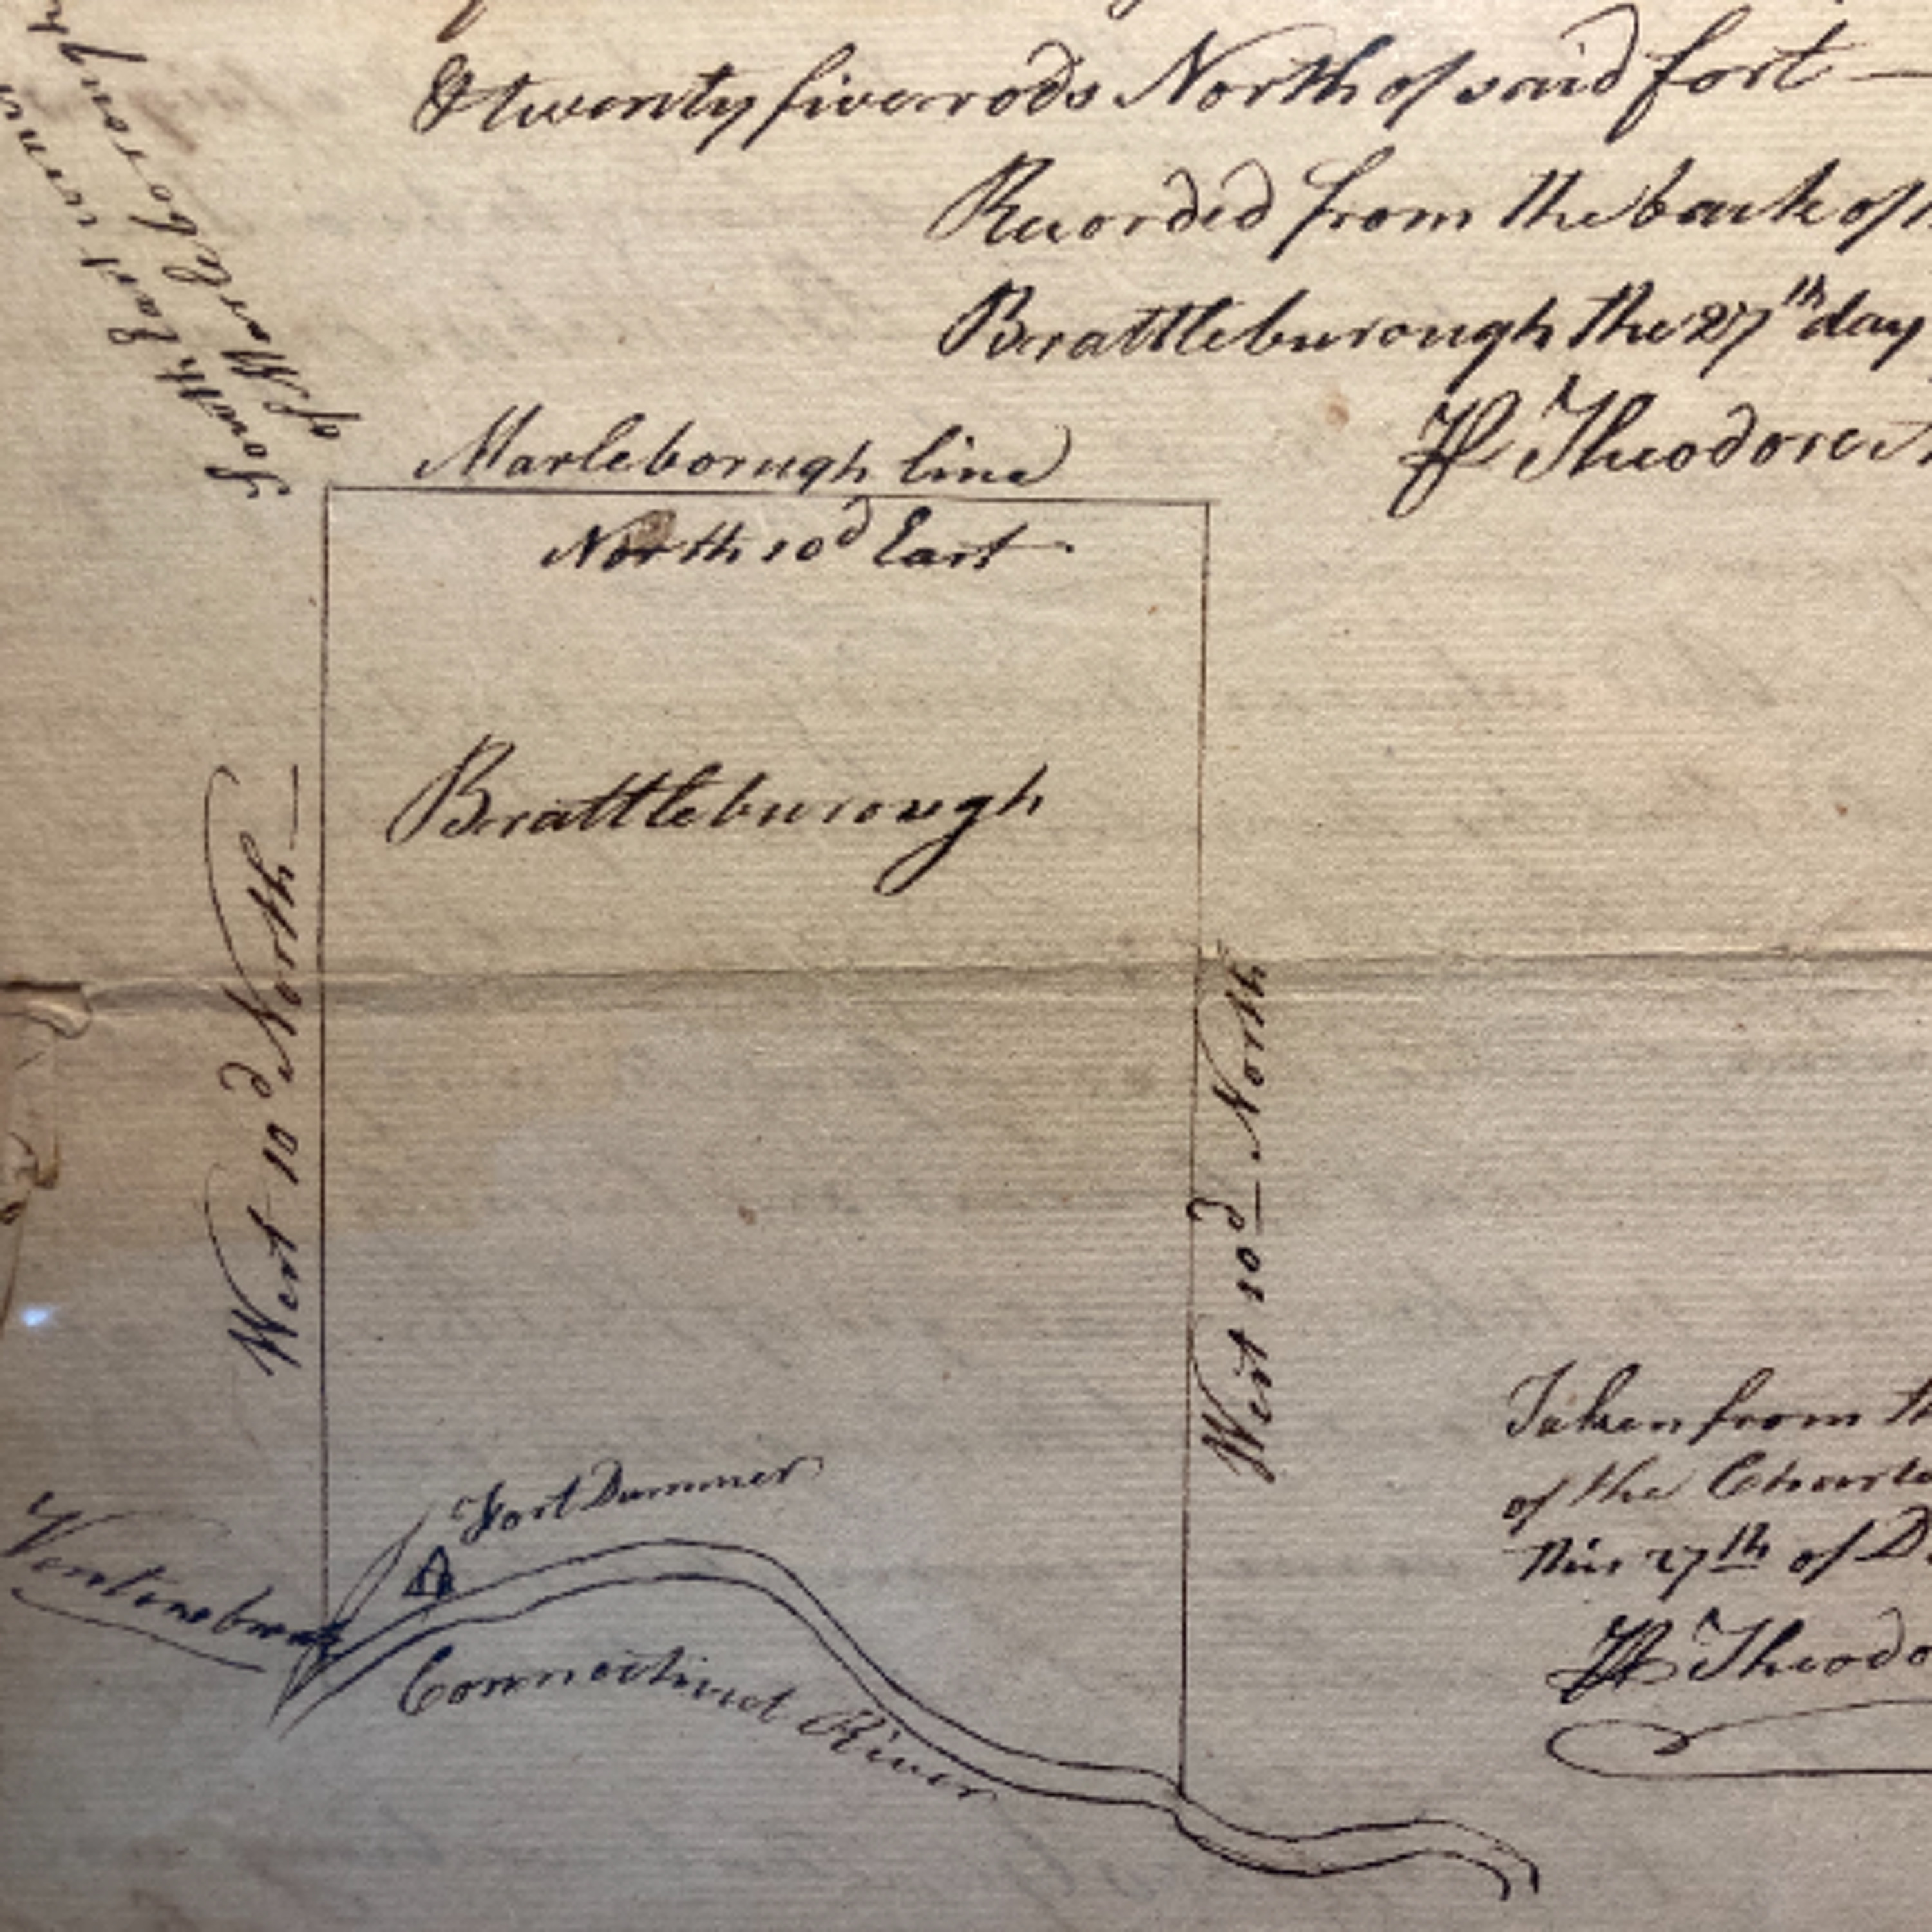 & twenty five rods North of said fort —
Recorded from the back of
Brattleburough the 27th day
Theodore
South East corner
of Marleborough
Marleborough line
North 10d East
Brattleburough
West 10d North
West 10d North
Fort Dummer
Connecticut River
Taken from th
of the Charte
this 27th of D
Theodo